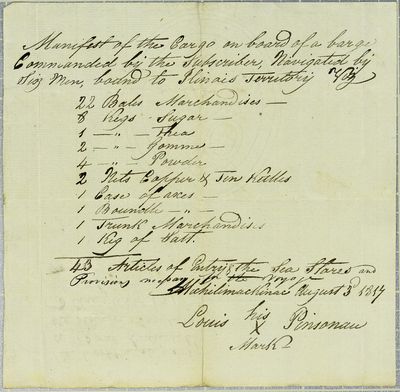 Manifest of the Cargo on board of a barge
Commanded by the Subscriber, Navigated by
Six Men, bound to Ilinois Territory Viz
22 Bales Marchandises —
8 Kegs Sugar —
1 — " — Thea
2 — " — Gomme —
4 — " — Powder
2 Nets Copper & Tin Kettles
1 Case of axes —
1 Boundle — " —
1 Trunk Marchandises
1 Keg of Salt.
43 Articles of Entry & the Sea Stores and
Provisions for the Voyage
Michilimackinac August 3d 1817
Louis his Pinsonau
X
Mark